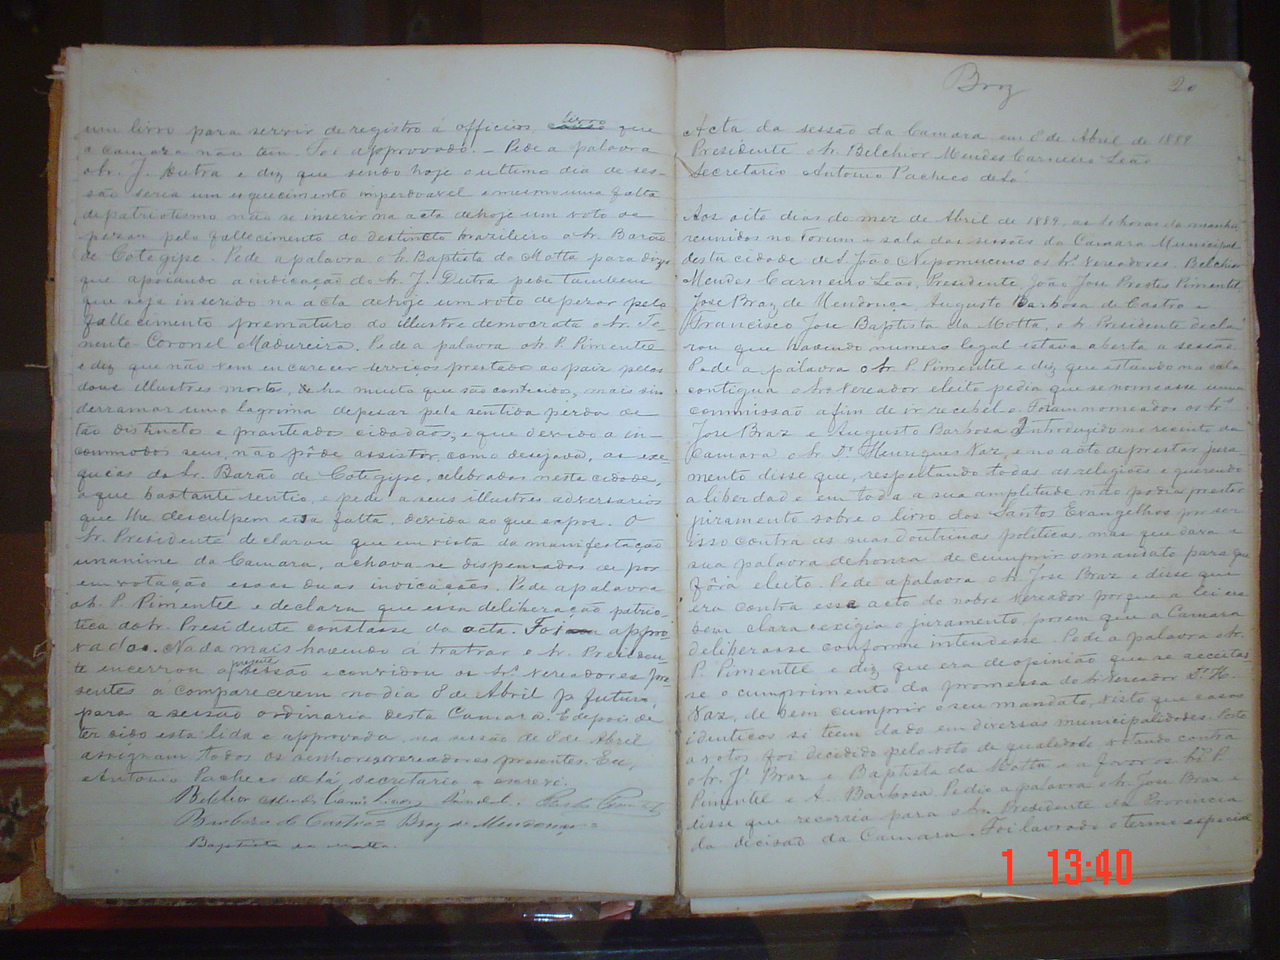 um livro para servir de registro á officios, livro que
a camara não tem. Foi approvado. – Pede a palavra
o Sr. J. Dutra e diz que sendo hoje o ultimo dia de ses-
são seria um esquecimento imperdoavel e mesmo uma falta
de patriotismo não se inserir na acta de hoje um voto de
pezar pelo fallecimento do destincto brazileiro o Sr. Barão
de Cotegipe. Pede a palavra o Sr Baptista da Motta para dizer
que apoiando a indicação do Sr. J. Dutra pede tambem
que seja inserido na acta de hoje um voto de pezar pelo
fallecimento prematuro do illustre democrata o Sr. Te-
nente Coronel Madureira. Pede a palavra o Sr. P. Pimentel
e diz que não vem encarecer serviços prestado ao paiz pelos
dous illustres mortos, ha muito que são conhecidos, mais sim
derramar uma lagrima de pesar pela sentida perda de
tão distinctos e pranteados cidadãos, e que devido a in-
commodos seus, não pôde assistir, como desejava, as exe-
quias do Sr. Barão de Cotegipe, celebradas nesta cidade,
o que bastante sentio, e pede a seus illustres adversarios
que lhe desculpem essa falta, devida ao que expos. O
Sr. Presidente declarou que em vista da manifestação
unanime da Camara, achava-se dispensado de por
em votação essas duas indicações. Pede a palavra
o Sr. P. Pimentel e declara que essa deliberação patrio-
tica do Sr. Presidente constasse da acta. Foi appro-
vado. Nada mais havendo á tratar o Sr. Presiden-
te encerrou a presente sessão e convidou os Srs. Vereadores pre-
sentes a comparecerem no dia 8 de Abril p. futuro,
para a sessão ordinaria desta Camara. E depois de
ter sido esta lida e approvada, na sessão de 8 de Abril
assignam todos os senhores vereadores presentes. Eu,
Antonio Pacheco de Sá, secretario o escrevi.
Belchior Mendes Carneiro Leão, Presidente.
Barbosa de Castro = Braz de Mendonça =
Baptista da Motta.
Braz 20
Acta da sessão da Camara em 8 de Abril de 1889
Presidente o Sr. Belchior Mendes Carneiro Leão
Secretario Antonio Pacheco de Sá.
Aos oito dias do mez de Abril de 1889, as 10 horas da manhã,
reunidos no Forum e sala das sessões da Camara Municipal
desta cidade de S. João Nepomuceno os Srs. Vereadores Belchior
Mendes Carneiro Leão, Presidente, João José Prestes Pimentel,
José Braz de Mendonça, Augusto Barbosa de Castro e
Francisco José Baptista da Motta, o Sr. Presidente decla-
rou que havendo numero legal estava aberta a sessão.
Pede a palavra o Sr P. Pimentel e diz que estando na sala
contigua o Sr. Vereador eleito pedia que se nomeasse uma
commissão afim de ir recebel-o. Foram nomeados os Srs.
José Braz e Augusto Barbosa. Introduzido no recinto da
Camara o Sr. Dr. Henrique Vaz, e no acto de prestar jura-
mento disse que, respeitando todas as religiões e querendo
a liberdade em toda a sua amplitude não podia prestar
juramento sobre o livro dos Santos Evangelhos por ser
isso contra as suas doutrinas politicas, mas que dava a
sua palavra de honra de cumprir o mandato para que
fôra eleito. Pede a palavra o Sr. José Braz e disse que
era contra esse acto do nobre Vereador porque a lei era
bem clara e exigia o juramento, porem que a Camara
deliberasse conforme intendesse. Pede a palavra o Sr.
P. Pimentel e diz que era de opinião que se aceitas-
se o cumprimento da promessa do Sr. Vereador Dr. H.
Vaz, de bem cumprir o seu mandato, visto que casos
identicos se teem dado em diversas municipalidades. Posto
a votos foi decidido pelo voto de qualidade, votando contra
o Sr. J. Braz e Baptista da Motta e a favor os Srs. P.
Pimentel e A. Barbosa. Pede a palavra o Sr. José Braz e
disse que recorria para o Sr. Presidente da Provincia
da decisão da Camara. Foi lavrado o termo especial
1 13:40